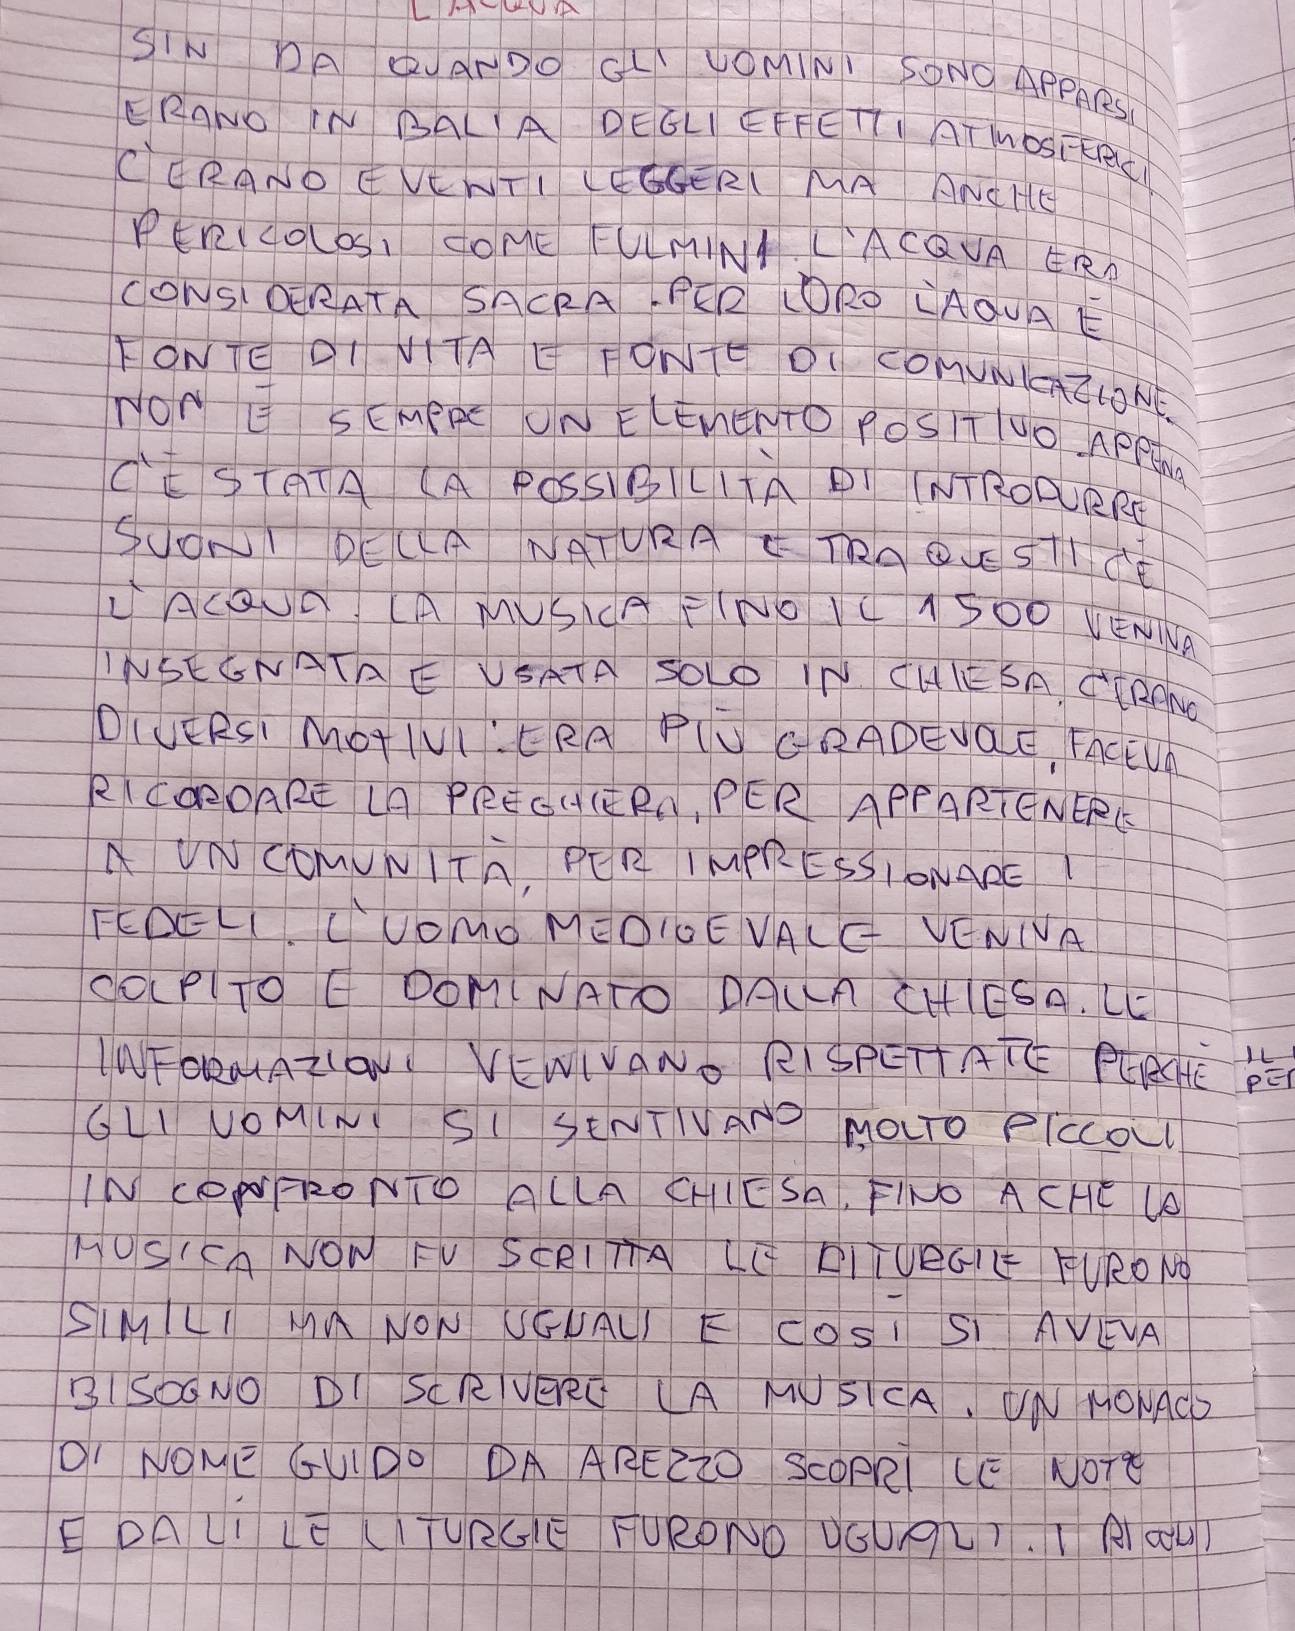 L'ACQUA
SIN DA QUANDO GLI UOMINI SONO APPARSI
ERANO IN BALIA DEGLI EFFETTI ATMOSFERICI
C'ERANO EVENTI LEGGERI MA ANCHE
PERICOLOSI COME FULMINI. L'ACQUA ERA
CONSIDERATA SACRA. PER LORO L'AQUA È
FONTE DI VITA E FONTE DI COMUNICAZIONE.
NON È SEMPRE UN ELEMENTO POSITIVO. APPENA
C'È STATA LA POSSIBILITÀ DI INTRODURRE
SUONI DELLA NATURA E TRA QUESTI C'È
L'ACQUA. LA MUSICA FINO IL 1500 VENIVA
INSEGNATA E USATA SOLO IN CHIESA. C'ERANO
DIVERSI MOTIVI: ERA PIÙ GRADEVOLE, FACEVA
RICORDARE LA PREGHIERA, PER APPARTENERE
A UN COMUNITÀ, PER IMPRESSIONARE I
FEDELI. L'UOMO MEDIOEVALE VENIVA
COLPITO E DOMINATO DALLA CHIESA. LE
INFORMAZIONI VENIVANO RISPETTATE PERCHÈ
GLI UOMINI SI SENTIVANO MOLTO PICCOLI
IN CONFRONTO ALLA CHIESA. FINO A CHE LA
MUSICA NON FU SCRITTA LE LITURGIE FURONO
SIMILI MA NON UGUALI E COSÌ SI AVEVA
BISOGNO DI SCRIVERE LA MUSICA. UN MONACO
DI NOME GUIDO DA AREZZO SCOPRÌ LE NOTE
E DA LÌ LE LITURGIE FURONO UGUALI. I
IL
PER